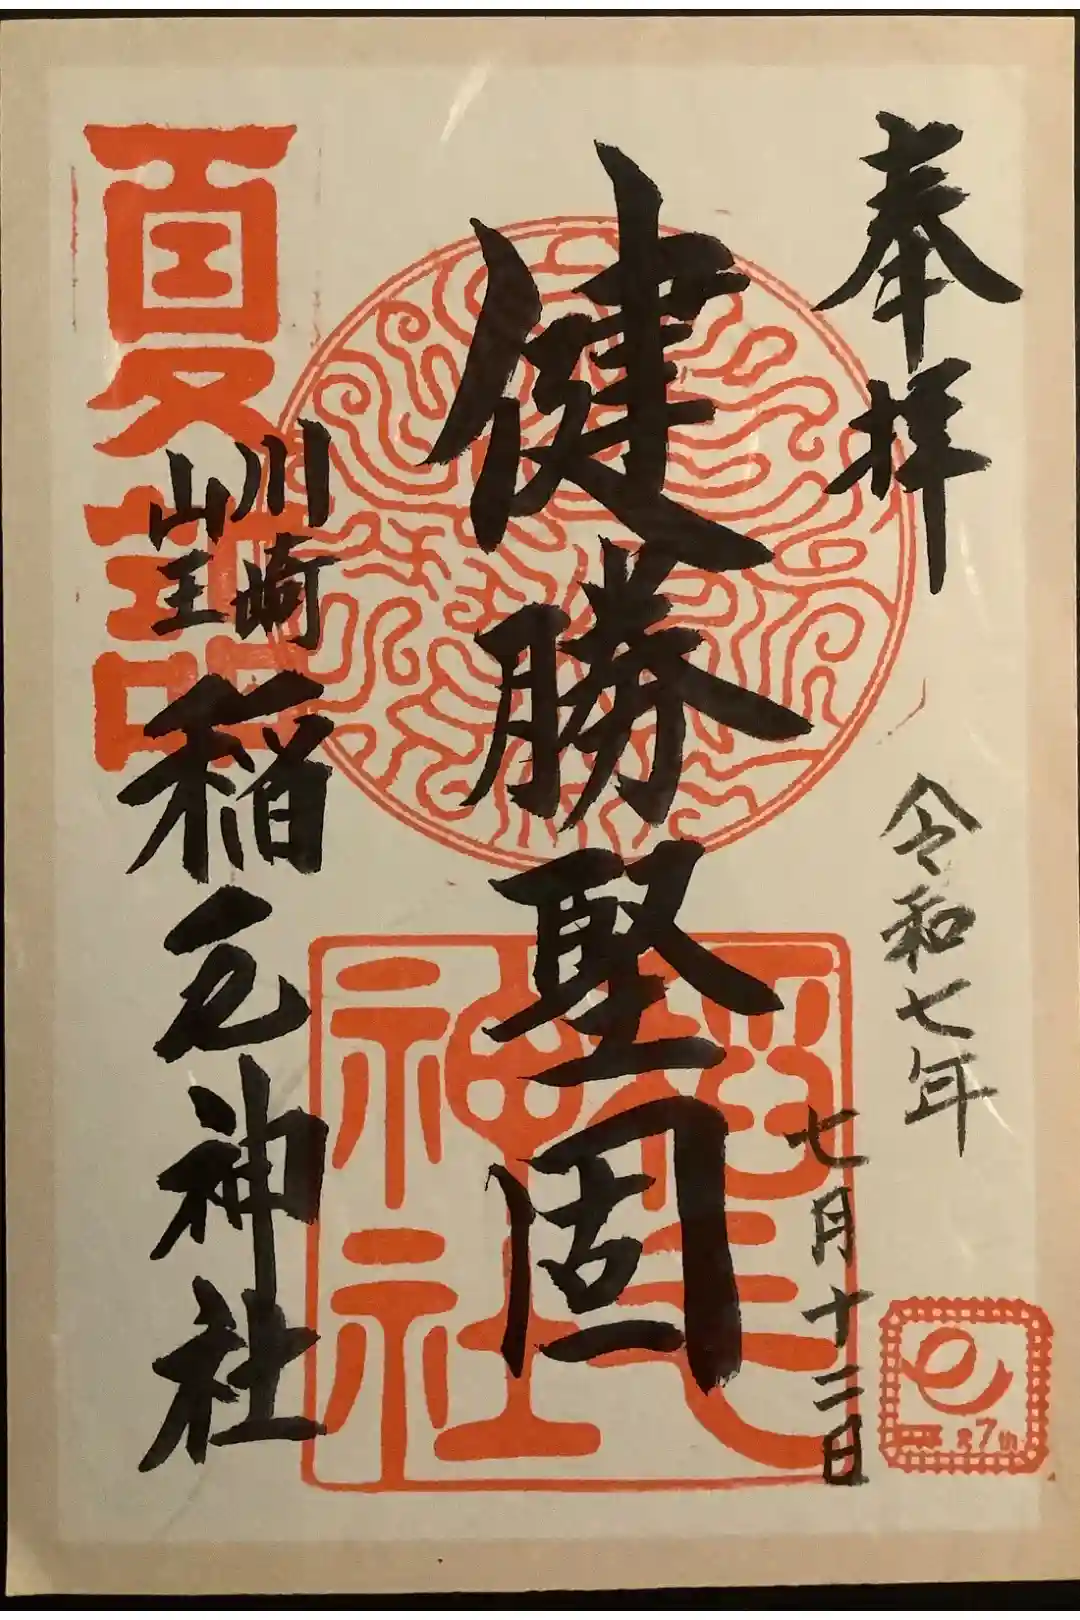 奉拝
令和七年
七月十三日
健勝堅固
夏詣
川崎
山王
稲毛神社
稲毛
神社
7th